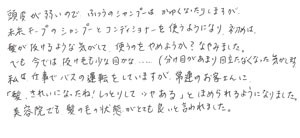 頭皮が弱いので、ふつうのシャンプーはかゆくなったりしますが、
のシャンプーとコンディショナーを使うようになり、初めは、
髪が抜けるような気がして、使うのをやめようか？なやみました。
でも今では抜け毛も少な目かな……（分け目があまり目立たなくなった気がします）
私は仕事でバスの運転をしていますが、常連のお客さんに、
「髪、きれいになったね！しっとりして つやある」とほめられるようになりました。
美容院でも髪の毛の状態がとても良いと言われました。